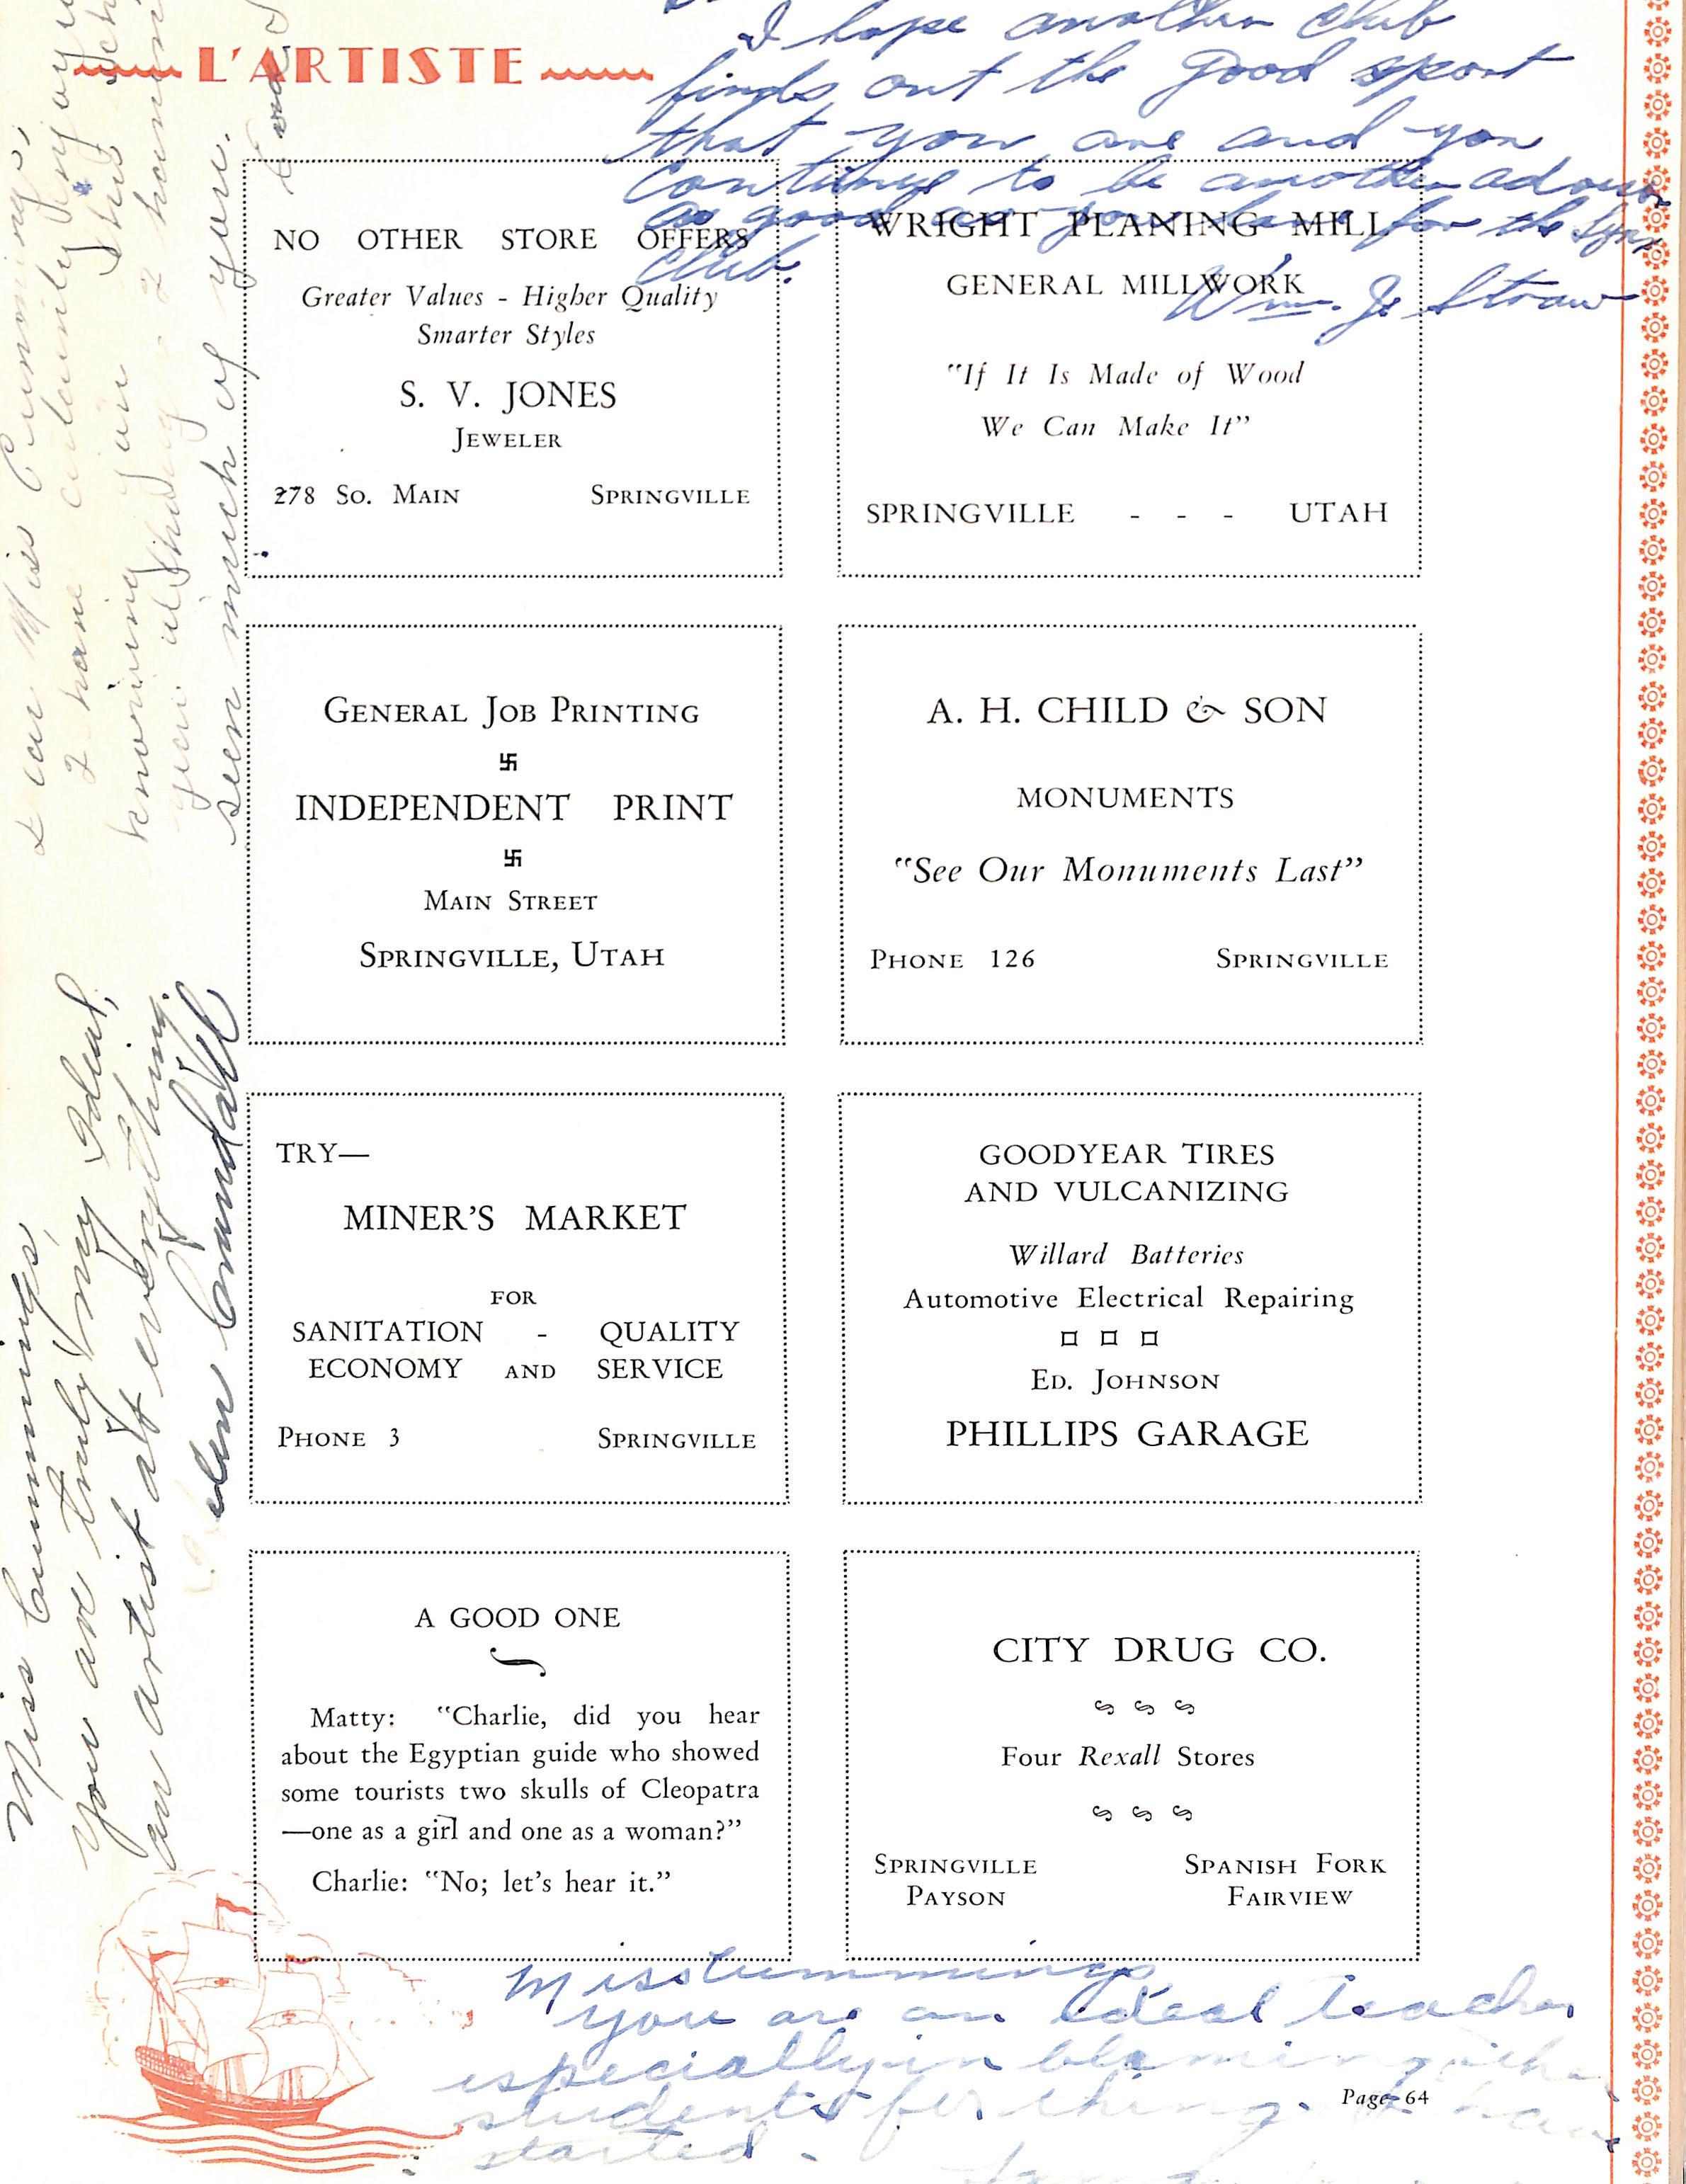 L'ARTISTE
I hope another club
finds out the good sport
that you are and you
continue to be another
as good as you have for the
Club.
Wm. Je Straw
Dear Miss Cummings,
I have certainly enjoyed
knowing you this
you although I haven't
seen much of you.
NO OTHER STORE OFFERS
Greater Values - Higher Quality
Smarter Styles
S. V. JONES
JEWELER
278 SO. MAIN SPRINGVILLE
WRIGHT PLANING MILL
GENERAL MILLWORK
"If It Is Made of Wood
We Can Make It"
SPRINGVILLE - - - UTAH
GENERAL JOB PRINTING
卐
INDEPENDENT PRINT
卐
MAIN STREET
SPRINGVILLE, UTAH
A. H. CHILD & SON
MONUMENTS
"See Our Monuments Last"
PHONE 126 SPRINGVILLE
Miss Cummings,
You are truly my Ideal,
an artist at everything.
Crandall
TRY—
MINER'S MARKET
FOR
SANITATION - QUALITY
ECONOMY AND SERVICE
PHONE 3 SPRINGVILLE
GOODYEAR TIRES
AND VULCANIZING
Willard Batteries
Automotive Electrical Repairing
ED. JOHNSON
PHILLIPS GARAGE
A GOOD ONE
Matty: "Charlie, did you hear
about the Egyptian guide who showed
some tourists two skulls of Cleopatra
—one as a girl and one as a woman?"
Charlie: "No; let's hear it."
CITY DRUG CO.
Four Rexall Stores
SPRINGVILLE SPANISH FORK
PAYSON FAIRVIEW
Miss Cummings
you are an ideal teacher
especially in blaming other
students for things I have
started.
Page 64